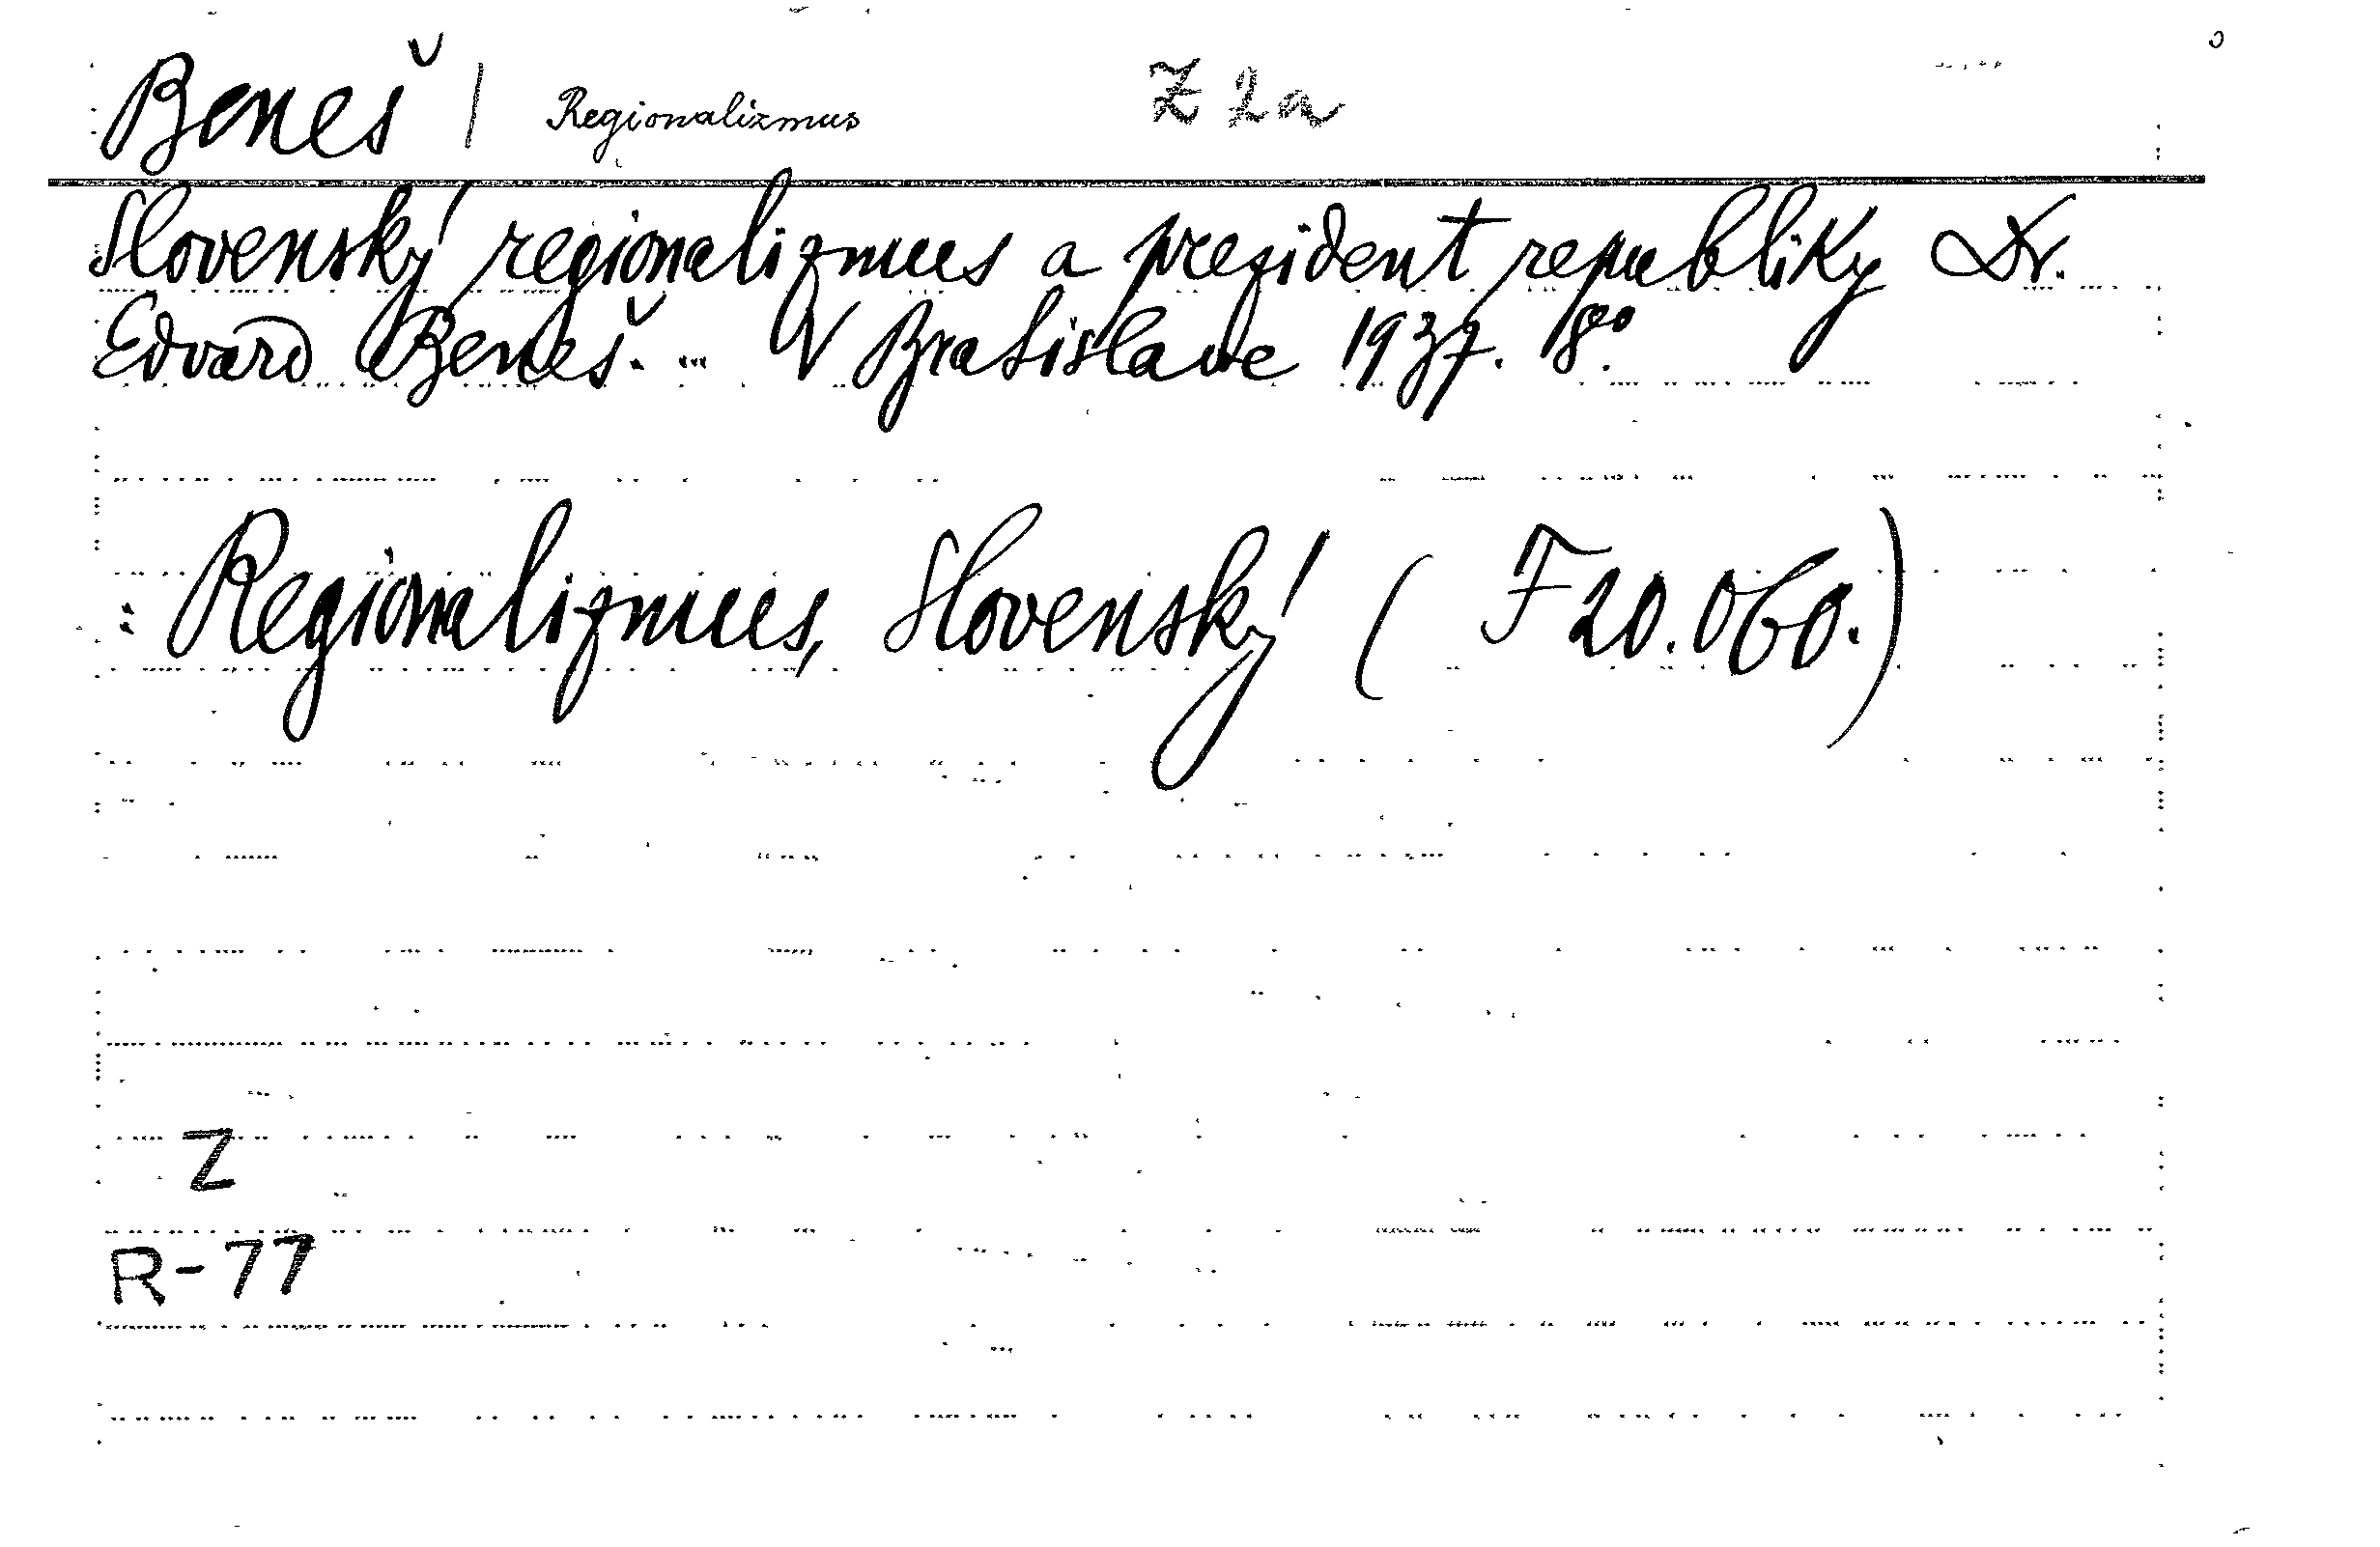 Beneš | Regionalizmus Z 2a
Slovenský regionalizmus a prezident republiky Dr.
Edvard Beneš. ... V Bratislave 1937. 8º.
: Regionalizmus, Slovenský ( F 20.060.)
Z
R-77